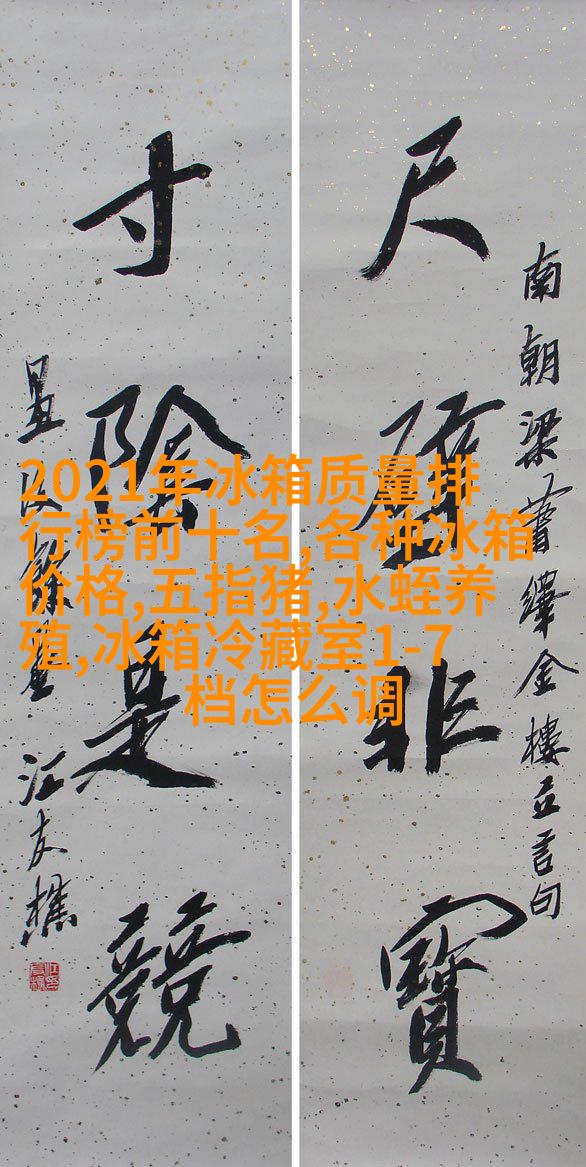 南朝梁蕭繹金樓立言句
尺璧非寶
寸陰是競
汪友樵
2021年冰箱质量排
行榜前十名,各种冰箱
价格,五指猪,水蛭养
殖,冰箱冷藏室1-7
档怎么调